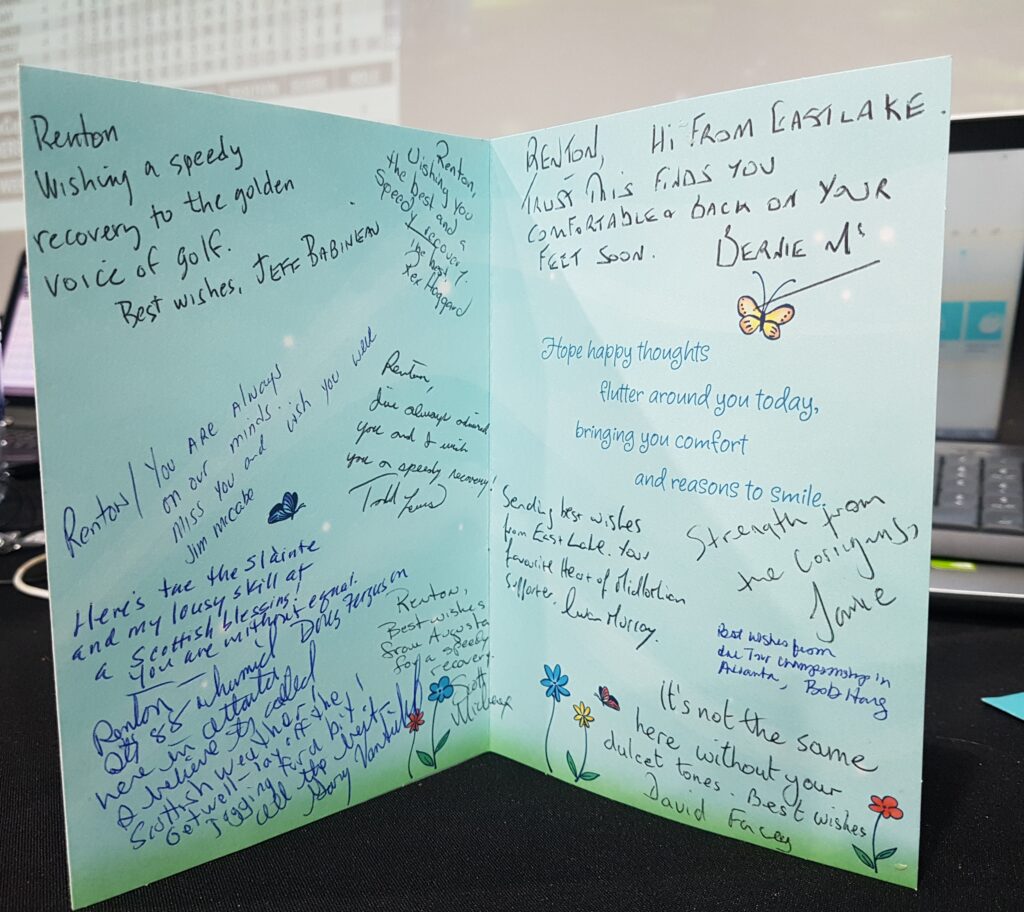 Renton
Wishing a speedy
recovery to the golden
voice of golf.
Best wishes, JEFF BABINEAU
Renton,
Wishing you
the best and a
Speedy recovery.
The best,
Rex Hoggard
Renton/ You are always
on our minds.
Miss you and wish you well
Jim McCabe
Renton,
I've always admired
you and I wish
you a speedy recovery!
Todd Lewis
Here's tae the Slainte
and my lousy skill at
a Scottish blessing!
You are without equal.
Doug Ferguson
Renton —
It's 88 & humid
here in Atlanta.
I believe it's called
Scottish weather.
Get well - lay off the
jogging for a bit!
All the best -
Gary Van Sickle
Renton,
Best wishes
from Augusta
for a speedy
recovery.
Scott
Michaux
RENTON, HI FROM EASTLAKE.
TRUST THIS FINDS YOU
COMFORTABLE & BACK ON YOUR
FEET SOON. BERNIE Mc
Hope happy thoughts
flutter around you today,
bringing you comfort
and reasons to smile.
Sending best wishes
from East Lake. Your
favourite Heart of Midlothian
supporter. Ewan Murray.
Strength from
the Corrigans,
Best wishes from
the Tour Championship in
Atlanta, Bob Harig
It's not the same
here without your
dulcet tones. Best wishes
David Facey